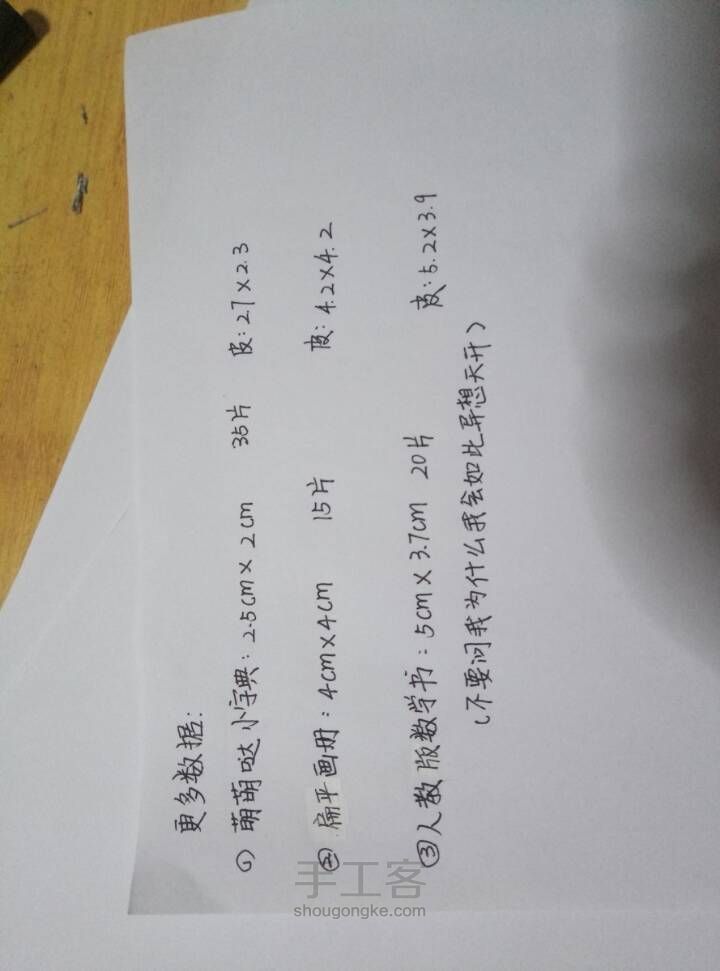 更多数据:
(1) 萌萌哒小字典: 2.5cm×2cm 35片 皮: 2.7×2.3
② 扁平画册: 4cm×4cm 15片 皮: 4.2×4.2
③ 人教版数学书: 5cm×3.7cm 20片 皮: 5.2×3.9
(不要问我为什么我会如此异想天开)
手工客
shougongke.com